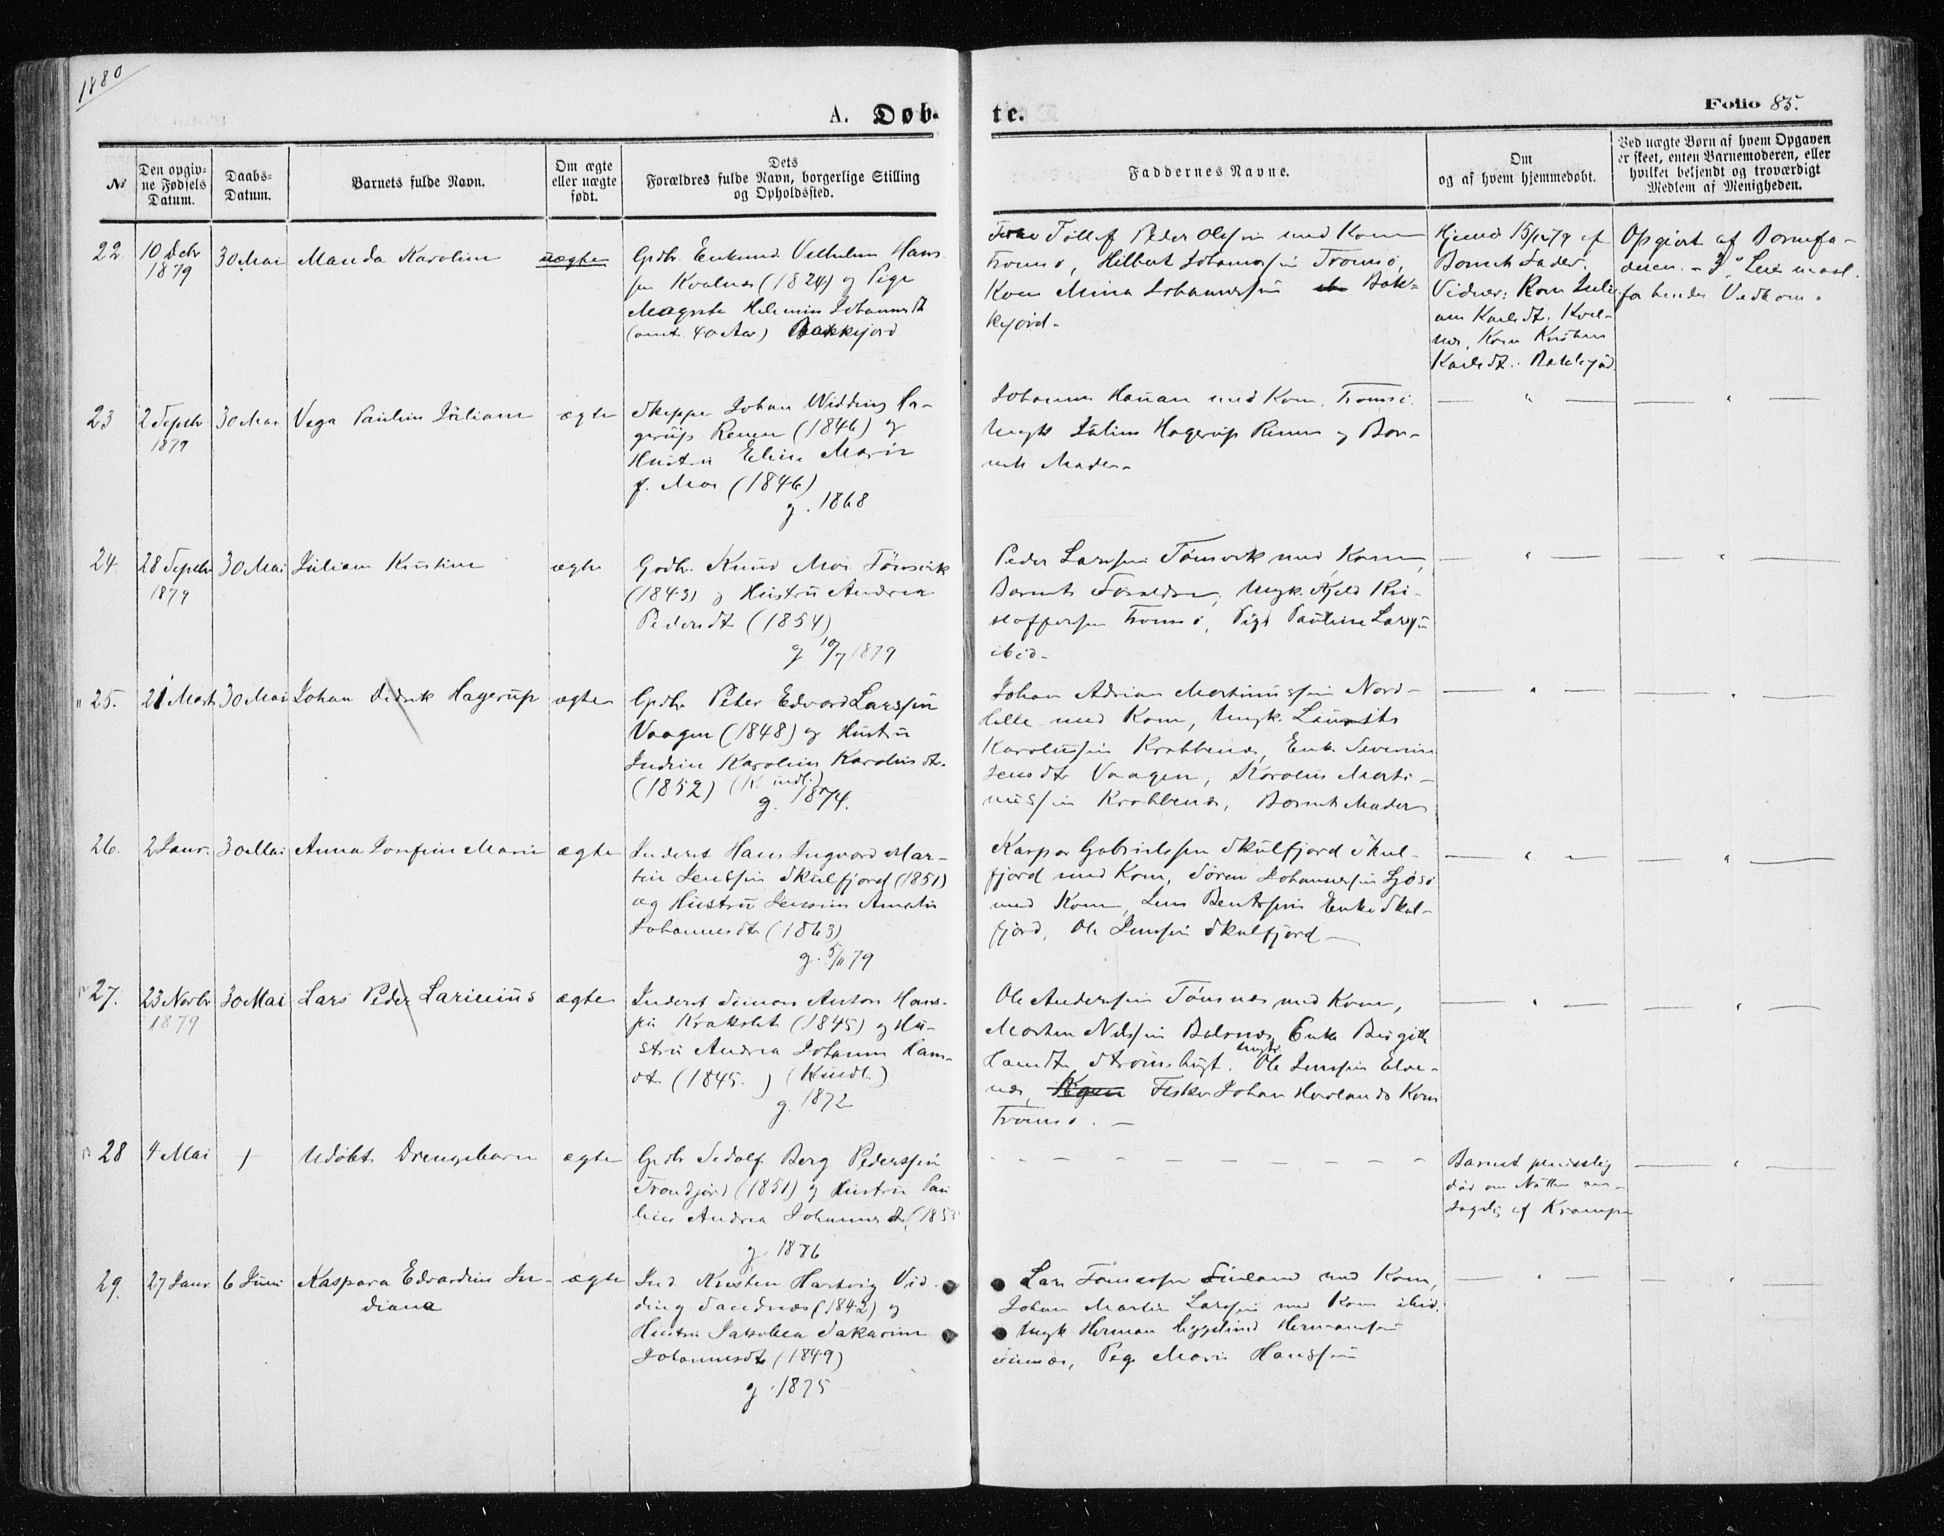 1880
A. Døb-
te.
Folio 85.
№
Den opgiv-
ne Fødsels
Datum.
Daabs-
Datum.
Barnets fulde Navn.
Om ægte
eller uægte
født.
Dets
Forældres fulde Navn, borgerlige Stilling
og Opholdssted.
Faddernes Navne.
Om
og af hvem hjemmedøbt.
Ved uægte Børn af hvem Opgaven
er skeet, enten Barnemoderen, eller
hvilket bekjendt og troværdigt
Medlem af Menigheden.
22.
10 Debr
1879
30 Mai
Manda Karoline
uægte
Grdbr. Enkemd. Vilhelm Hans
sen Kvalnes (1824) og Pige
Magrete Helmine Johannesdt
(omt. 40 Aar) Bakkejord
Tollef Peder Olsen med Kone
Tromsø, Hilbert Johannessen Tromsø,
Kone Mina Johannessen Bak-
kejord.
Hjemd 15/12 79 af
Barnets Fader.
Vidner: Kone Juli-
ane Karlsdt. Kval-
nes, Kone
Karlsdt. Bakkejord
Opgivet af Barnefa-
deren. -
23
2 Septbr
1879
30 Mai
Vega Pauline Juliane
ægte
Skipper Johan Widding Ha-
gerup Rener (1846) og
Hustru Eline Marie
f. Moe (1846)
g. 1868
Johannes Hanan med Kone. Tromsø.
Ungk Julius Hagerup Rener og Bar-
nets Moder.
24
28 Septbr
1879
30 Mai
Juliane Kristine
ægte
Grdbr. Knud Moe Tønsvik
(1843) og Hustru Andrea
Pedersdt (1854)
g 10/7 1879
Peder Larssen Tønsvik med Kone,
Barnets Forældre, Ungk. Kjeld Kri-
stoffersen Tromsø, Pige Pauline Larss
ibid.
25.
21 Marts
30 Mai
Johan Didrik Hagerup
ægte
Grdbr Peter Edvard Larssen
Vaagen (1848) og Hustru
Indrine Karoline Karolusdt.
(1852) (K. indl.)
g. 1874.
Johan Adrian Martinussen Nord-
helle med Kone, Ungk. Laurits
Karolussen Krabbenes, Enke Severine
Jensdt Vaagen, Karolus Marti-
nussen Krabbenes, Barnets Moder
26.
2 Janr.
30 Mai
Anna Josefine Marie
ægte
Inderst Hans Ingvard Mar-
tin Jenssen Skulfjord (1851)
og Hustru Jensine Amalie
Johannesdt (1863)
g. 5/11 79
Kaspar Gabrielsen Skulfjord Skul-
fjord med Kone, Søren Johannessen
med Kone, Bentssen Enke Skul-
fjord, Ole Jenssen Skulfjord
27.
23 Novbr
1879
30 Mai
Lars Peder Larinius
ægte
Inderst Simon Anton Hans-
sen Krakslet (1845) og Hu-
stru Andrea Johanna Hans-
dt (1845.) (Kindl.)
g. 1872
Ole Anderssen Tønsnes med Kone,
Morten Nilssen Balsnes, Enke Birgitte
Hansdt, Strømsbugt. Ungk. Ole Jenssen Elve-
nes, Fisker Johan Hovlands Kone
Tromsø.
28
4 Mai
Udøbt Drengebarn
ægte
Grdbr Sedolf Berg Pederssen
Trondjord (1851) og Hustru Pau
line Andrea Johannesdt (185
g. 1876
Barnet pludselig
død om Natten
af Krampe
29.
27 Janr
6 Juni
Kaspara Edvardine In-
diana
ægte
Ind Kristen Hartvig Vid-
ding Sandnes (1842) og
Hustru Jakobea Sakarine
Johannesdt (1849)
g. 1875
Lars Tomassen Finland med Kone,
Johan Martin Larssen med Kone ibid.
Ungk Herman Hermansen
Pige Marie Hanssen